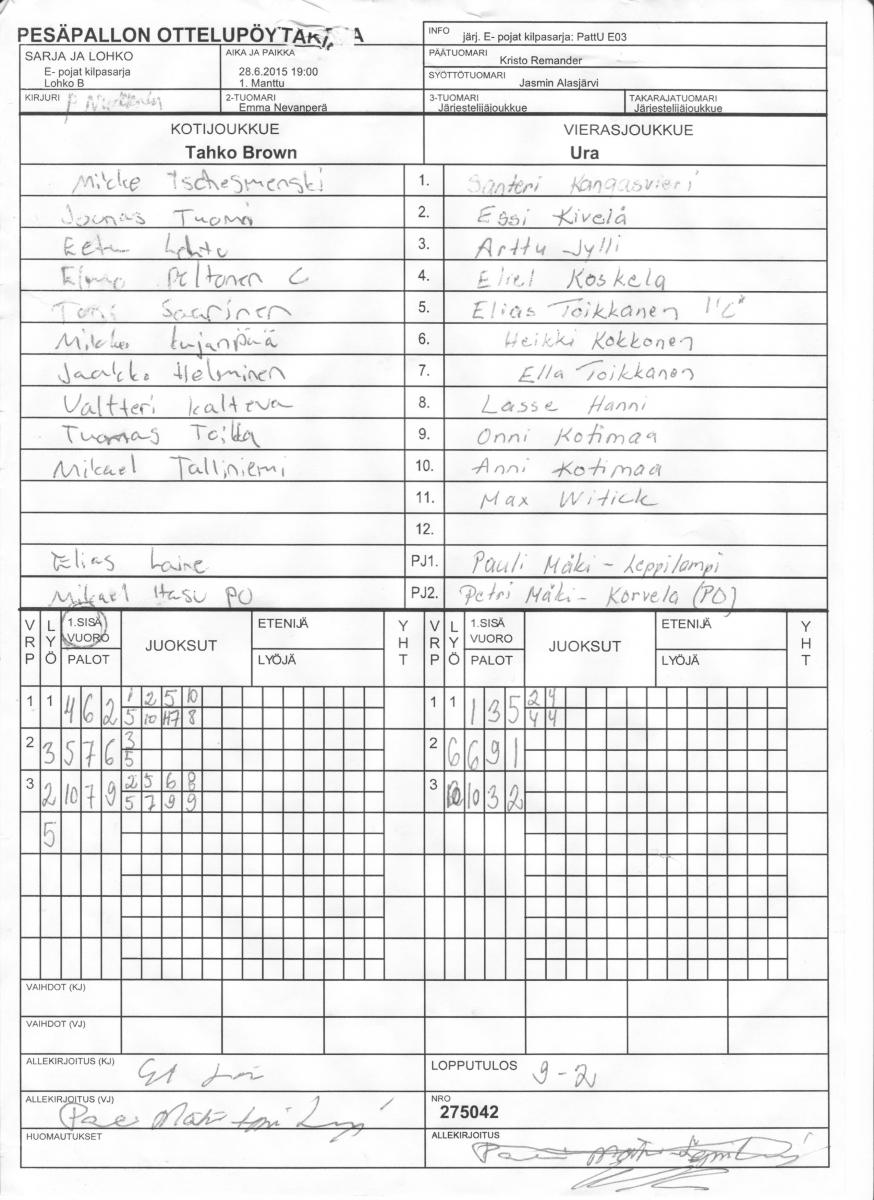 PESÄPALLON OTTELUPÖYTAKIRJA
INFO järj. E- pojat kilpasarja: PattU E03
SARJA JA LOHKO
E- pojat kilpasarja
Lohko B
AIKA JA PAIKKA
28.6.2015 19:00
1. Manttu
PÄÄTUOMARI
Kristo Remander
SYÖTTÖTUOMARI
Jasmin Alasjärvi
KIRJURI
2-TUOMARI
Emma Nevanperä
3-TUOMARI
Järjestelijäjoukkue
TAKARAJATUOMARI
Järjestelijäjoukkue
KOTIJOUKKUE VIERASJOUKKUE
Tahko Brown Ura
Mikke Tschesmenski 1. Santeri Kangasvieri
Joonas Tuomi 2. Essi Kivelä
Eetu Lehto 3. Arttu Jylli
Elmo Peltonen C 4. Eliel Koskela
Toni Saarinen 5. Elias Toikkanen "C"
Mikko Kujanpää 6. Heikki Kokkonen
Jaakko Helminen 7. Ella Toikkanen
Valtteri Kalteva 8. Lasse Hanni
Tuomas Toikka 9. Onni Kotimaa
Mikael Talliniemi 10. Anni Kotimaa
11. Max Witick
12.
Elias Laine PJ1. Pauli Mäki-Leppilampi
Mikael Hasu PO PJ2. Petri Mäki-Korvela (PO)
VRP LYÖ 1.SISÄ VUORO PALOT JUOKSUT ETENIJÄ LYÖJÄ YHT VRP LYÖ 1.SISÄ VUORO PALOT JUOKSUT ETENIJÄ LYÖJÄ YHT
1 1 4 6 2 1 2 5 10 1 1 1 3 5 2 4
5 10 7 8 4 4
2 3 5 7 6 3 2 6 6 9 1
5
3 2 10 7 9 2 5 6 8 3 10 10 3 2
5 7 9 9
5
VAIHDOT (KJ)
VAIHDOT (VJ)
ALLEKIRJOITUS (KJ)
LOPPUTULOS 9-2
ALLEKIRJOITUS (VJ)
NRO
275042
HUOMAUTUKSET
ALLEKIRJOITUS